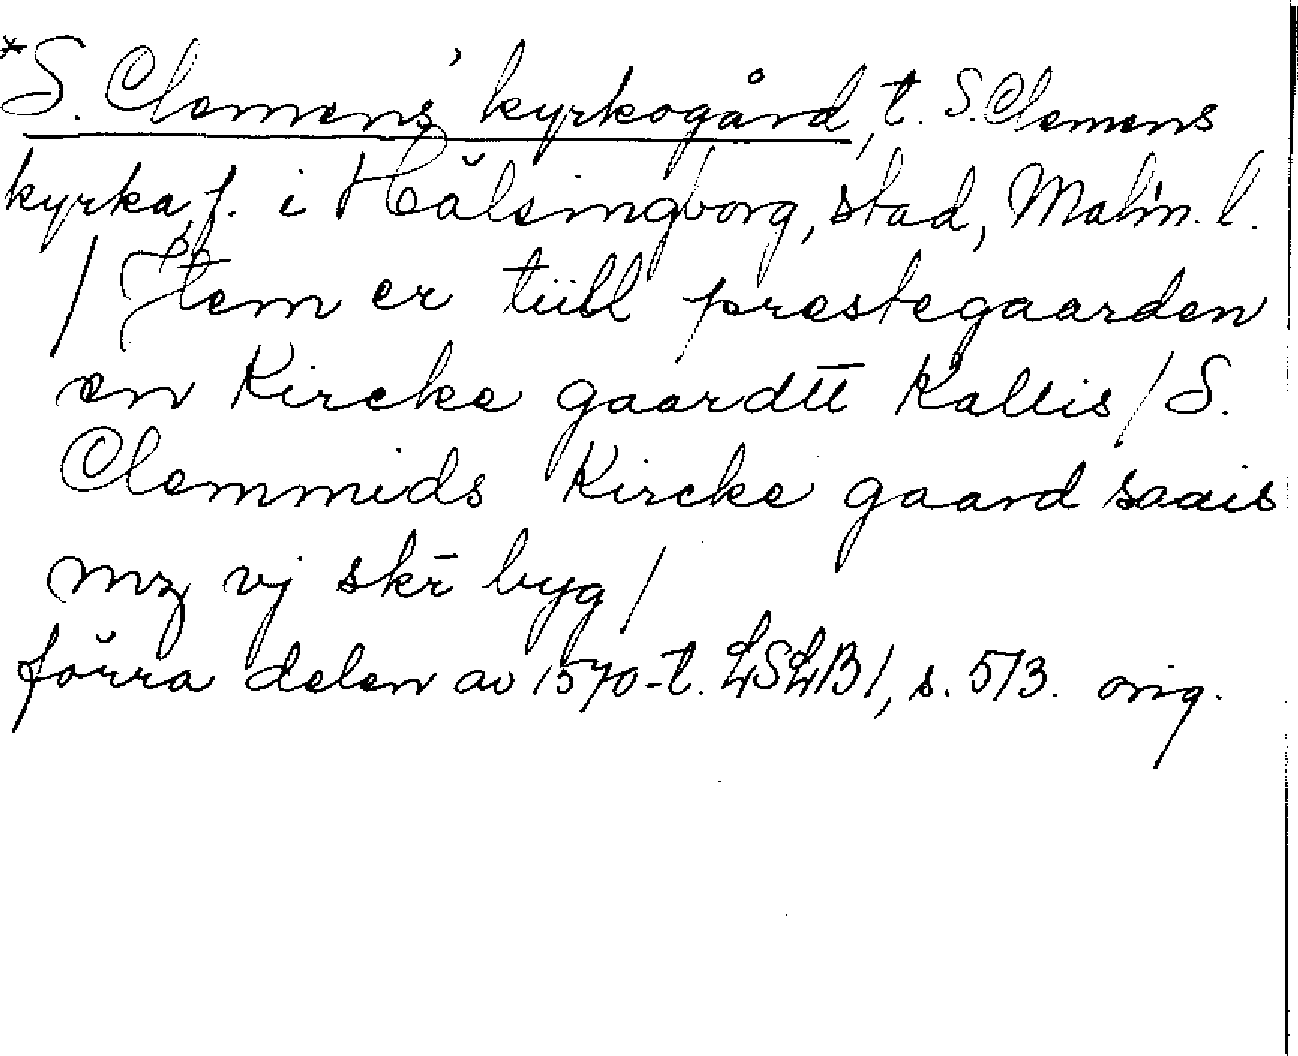 *S. Clemens' kyrkogård, t. S. Clemens
kyrka, f. i Hälsingborg, stad, Malm. l.
/ Jtem er tiill prestegaarden
en Kircke gaardtt Kallis / S.
Clemmids Kircke gaard saais
mz vj skr̄ byg /
förra delen av 1570-t. LSLB 1, s. 513. orig.